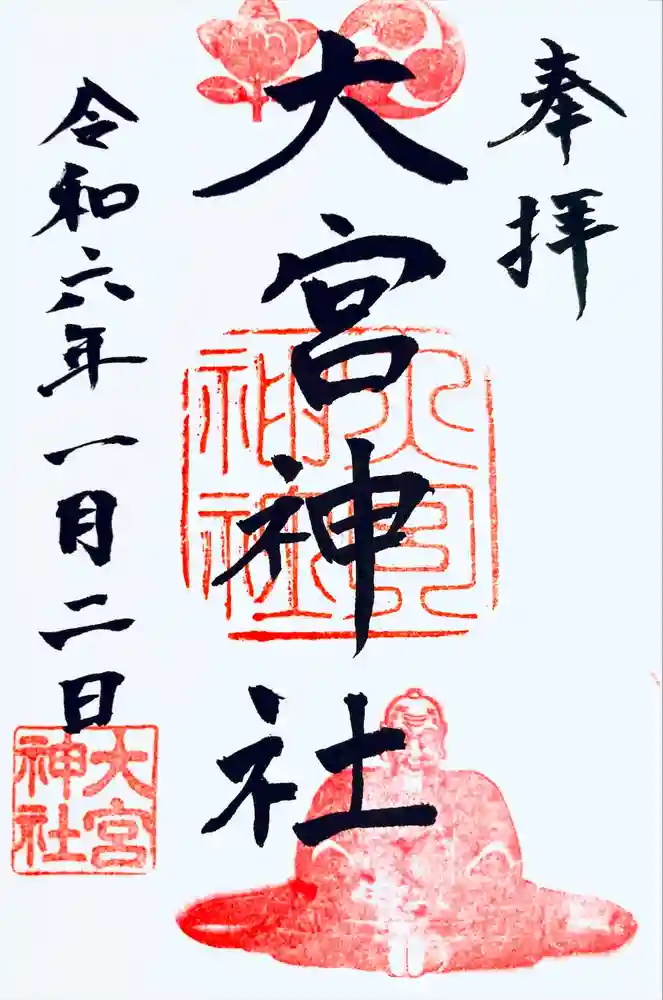 奉拝
大宮神社
令和六年一月二日
大宮神社
大宮神社